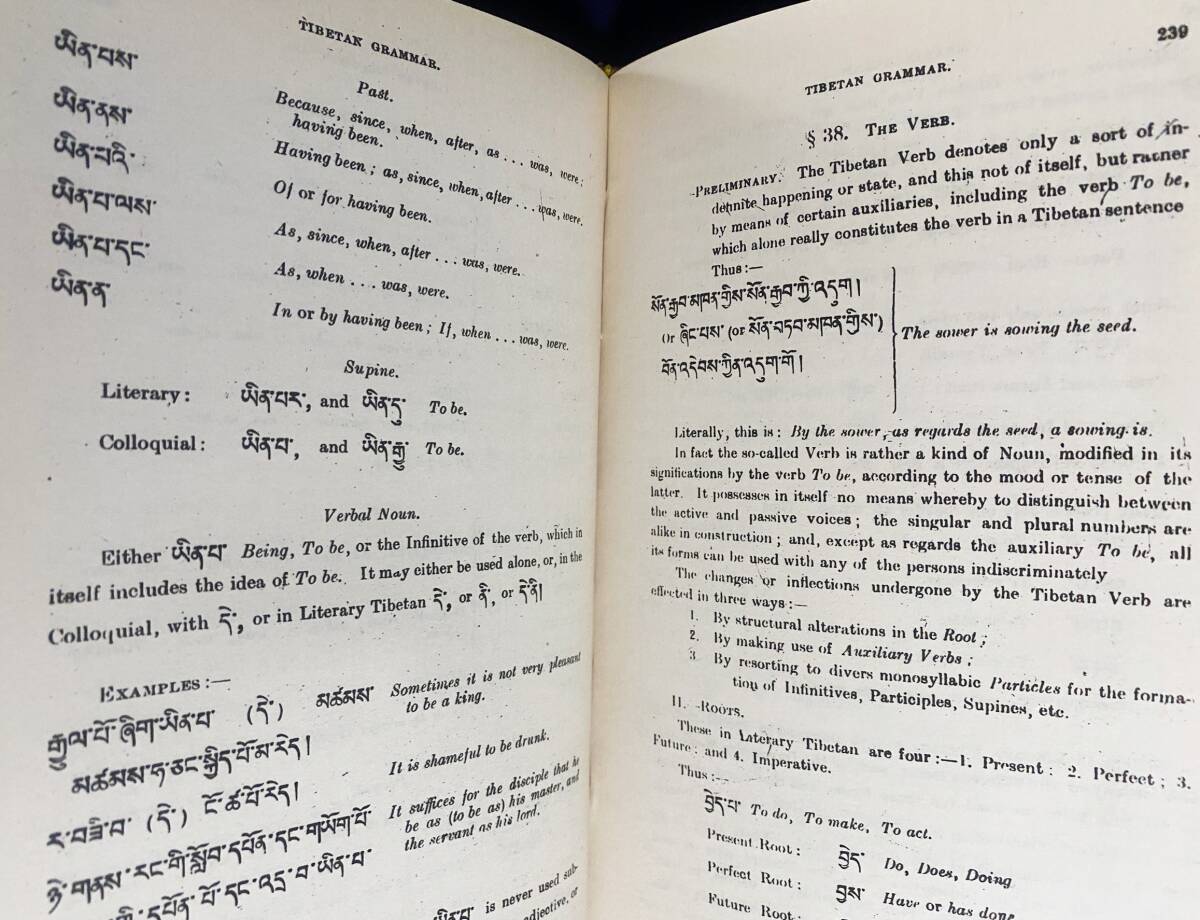 TIBETAN GRAMMAR.
Past.
ཡིན་པས་ Because, since, when, after, as . . . was, were;
having been.
ཡིན་ནས་ Having been; as, since, when, after . . . was, were.
ཡིན་པའི་ Of or for having been.
ཡིན་པ་ལས་ As, since, when, after . . . was, were.
ཡིན་པ་དང་ As, when . . . was, were.
ཡིན་ན་ In or by having been; If, when . . . was, were.
Supine.
Literary: ཡིན་པར་, and ཡིན་དུ་ To be.
Colloquial: ཡིན་པ་, and ཡིན་རྒྱུ་ To be.
Verbal Noun.
Either ཡིན་པ་ Being, To be, or the Infinitive of the verb, which in
itself includes the idea of To be. It may either be used alone, or, in the
Colloquial, with དེ་, or in Literary Tibetan དེ་, or ནི་, or དེ་ནི།
EXAMPLES:—
རྒྱལ་པོ་ཞིག་ཡིན་པ་ (དེ་) མཚམས་ Sometimes it is not very pleasant
མཚམས་ཧ་ཅང་སྐྱིད་པོ་མ་རེད། to be a king.
ར་བཟི་བ་ (དེ་) ངོ་ཚ་པོ་རེད། It is shameful to be drunk.
ཉེ་གནས་རང་གི་སློབ་དཔོན་དང་གཡོག་པོ་ It suffices for the disciple that he
be as (to be as) his master, and
དཔོན་པོ་དང་འདྲ་བ་ཡིན་པ་ the servant as his lord.
ཡིན་པ་ is never used sub-
adjective, or
239
TIBETAN GRAMMAR.
§ 38. THE VERB.
PRELIMINARY. The Tibetan Verb denotes only a sort of in-
definite happening or state, and this not of itself, but rather
by means of certain auxiliaries, including the verb To be,
which alone really constitutes the verb in a Tibetan sentence
Thus:—
སོན་རྒྱབ་མཁན་གྱིས་སོན་རྒྱབ་ཀྱི་འདུག།
Or ཞིང་པས་ (or སོན་བཏབ་མཁན་གྱིས་) The sower is sowing the seed.
སོན་འདེབས་ཀྱིན་འདུག་གོ།
Literally, this is: By the sower, as regards the seed, a sowing is.
In fact the so-called Verb is rather a kind of Noun, modified in its
significations by the verb To be, according to the mood or tense of the
latter. It possesses in itself no means whereby to distinguish between
the active and passive voices; the singular and plural numbers are
alike in construction; and, except as regards the auxiliary To be, all
its forms can be used with any of the persons indiscriminately
The changes or inflections undergone by the Tibetan Verb are
effected in three ways:—
1. By structural alterations in the Root;
2. By making use of Auxiliary Verbs;
3 By resorting to divers monosyllabic Particles for the forma-
tion of Infinitives, Participles, Supines, etc.
II. ROOTS.
These in Literary Tibetan are four:—1. Present: 2. Perfect; 3.
Future: and 4. Imperative.
Thus:—
བྱེད་པ་ To do, To make, To act.
Present Root: བྱེད་ Do, Does, Doing
Perfect Root: བྱས་ Have or has done
Future Root: